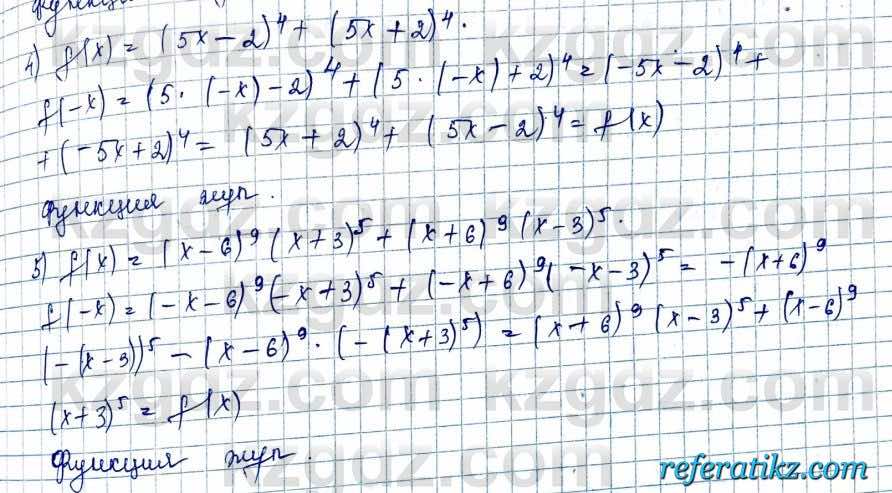 функция
4) f(x) = (5x - 2)⁴ + (5x + 2)⁴.
f(-x) = (5 · (-x) - 2)⁴ + (5 · (-x) + 2)⁴ = (-5x - 2)⁴ +
+ (-5x + 2)⁴ = (5x + 2)⁴ + (5x - 2)⁴ = f(x)
функция жуп.
5) f(x) = (x - 6)⁹ (x + 3)⁵ + (x + 6)⁹ (x - 3)⁵.
f(-x) = (-x - 6)⁹ (-x + 3)⁵ + (-x + 6)⁹ (-x - 3)⁵ = -(x + 6)⁹
(-(x - 3))⁵ - (x - 6)⁹ · (-(x + 3)⁵) = (x + 6)⁹ (x - 3)⁵ + (x - 6)⁹
(x + 3)⁵ = f(x)
Функция жуп.
kzgdz.com
referatikz.com